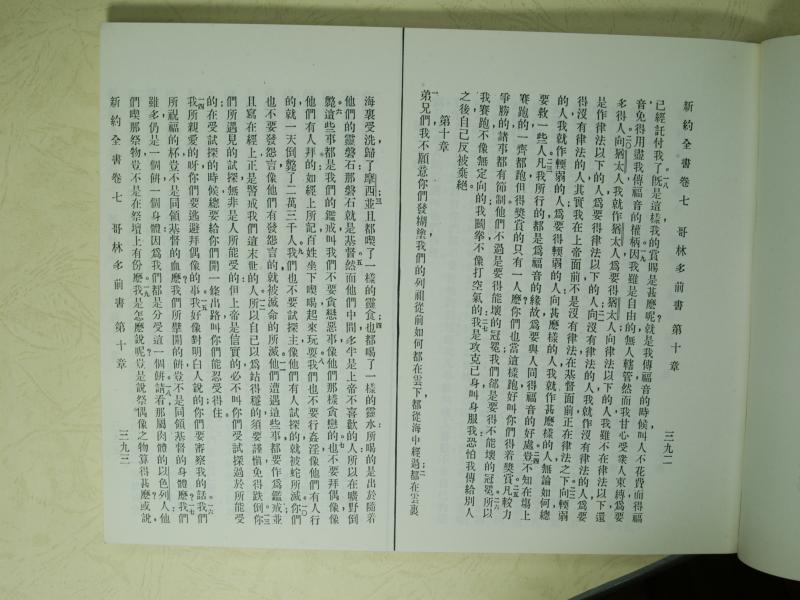 新約全書卷七 哥林多前書 第十章 三九二
已經託付我了既是這樣我的賞賜是甚麼呢就是我傳福音的時候叫人不花費而得福
音免得用盡我傳福音的權柄因我雖是自由的無人轄管然而我甘心受衆人束縛爲要
多得人向猶太人我就作猶太人爲要得猶太人向律法以下的人我雖不在律法以下還
是作律法以下的人爲要得律法以下的人向沒有律法的人我就作沒有律法的人爲要
得沒有律法的人其實我在上帝面前不是沒有律法在基督面前正在律法之下向輭弱
的人我就作輭弱的人爲要得輭弱的人向甚麼樣的人我就作甚麼樣的人無論如何總
要救一些人凡我所行的都是爲福音的緣故爲要與人同得福音的好處豈不知在塲上
賽跑的一齊都跑但得獎賞的只有一人麼你們也當這樣跑好叫你們得着獎賞凡較力
爭勝的諸事都有節制他們不過是要得能壞的冠冕我們卻是要得不能壞的冠冕所以
我賽跑不像無定向的我鬭拳不像打空氣的我是攻克己身叫身服我恐怕我傳給別人
之後自己反被棄絕
第十章
弟兄們我不願意你們發糊塗我們的列祖從前如何都在雲下都從海中經過都在雲裏
海裏受洗歸了摩西並且都喫了一樣的靈食也都喝了一樣的靈水所喝的是出於隨着
他們的靈磐石那磐石就是基督然而他們中間多半是上帝不喜歡的人所以在曠野倒
斃這些事都是我們的鑑戒叫我們不要貪戀惡事像他們那樣貪戀的也不要拜偶像像
他們有人拜的如經上所記百姓坐下喫喝起來玩耍我們也不要行姦淫像他們有人行
的就一天倒斃了二萬三千人我們也不要試探主像他們有人試探的就被蛇所滅你們
也不要發怨言像他們有發怨言的就被滅命的所滅他們遭遇這些事都要作爲鑑戒並
且寫在經上正是警戒我們這末世的人所以自己以爲站得穩的須要謹愼免得跌倒你
們所遇見的試探無非是人所能受的上帝是信實的必不叫你們受試探過於所能受
的在受試探的時候總要給你們開一條出路叫你們能忍受得住
我所親愛的呀你們要逃避拜偶像的事我好像對明白人說的你們要審察我的話我們
所祝福的杯豈不是同領基督的血麼我們所擘開的餅豈不是同領基督的身體麼我們
雖多仍是一個餅一個身體因爲我們都是分受這一個餅請看那屬肉體的以色列人他
們喫那祭物豈不是在祭壇上有份麼我是怎麼說呢豈是說祭偶像之物算得甚麼或說
新約全書卷七 哥林多前書 第十章 三九二